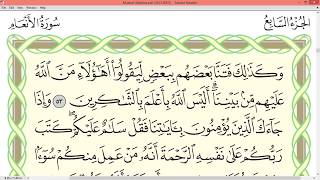 الجزء السابع
سورة الأنعام
وَكَذَٰلِكَ فَتَنَّا بَعْضَهُم بِبَعْضٍ لِّيَقُولُوٓا۟ أَهَٰٓؤُلَآءِ مَنَّ ٱللَّهُ
عَلَيْهِم مِّنۢ بَيْنِنَآ ۗ أَلَيْسَ ٱللَّهُ بِأَعْلَمَ بِٱلشَّٰكِرِينَ ٥٣ وَإِذَا
جَآءَكَ ٱلَّذِينَ يُؤْمِنُونَ بِـَٔايَٰتِنَا فَقُلْ سَلَٰمٌ عَلَيْكُمْ ۖ كَتَبَ
رَبُّكُمْ عَلَىٰ نَفْسِهِ ٱلرَّحْمَةَ ۖ أَنَّهُۥ مَنْ عَمِلَ مِنكُمْ سُوٓءًۢا